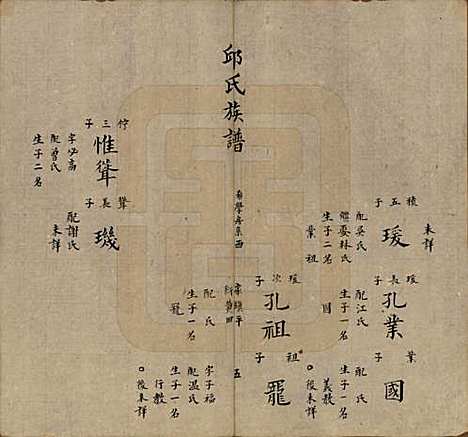 未詳
穗五子
瑗
配吳氏
繼娶林氏
生子二名
業
祖
瑗長子
孔業
配江氏
生子一名
國
業子
國
配氏
生子一名
義教
後未詳
瑗次子
孔祖
配氏
生子一名
羆
祖子
羆
字子福
配溫氏
生子一名
行教
後未詳
五
邱氏族譜
三子
惟聳
字必高
配曾氏
生子二名
聳長子
璣
配謝氏
未詳